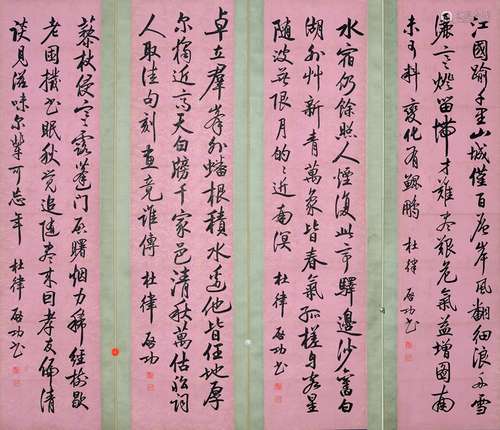 江國踰千里山城僅百層岸風翻夕浪舟雪
灑寒燈留滯才難盡艱危氣益增圖南
未可料變化有鯤鵬 杜律 啟功書
水宿仍餘照人煙復此亭驛邊沙舊白
湖外草新青萬象皆春氣孤槎自客星
隨波無限月的的近南溟 杜律 啟功書
卓立群峯外蟠根積水邊他皆任地厚
爾獨近高天白牓千家邑清秋萬估船詞
人取佳句刻畫竟誰傳 杜律 啟功
藜杖侵寒露蓬門啟曙烟力稀經樹歇
老困撥書眠秋覺追隨盡來因孝友偏清
談見滋味爾輩可忘年 杜律 啟功書